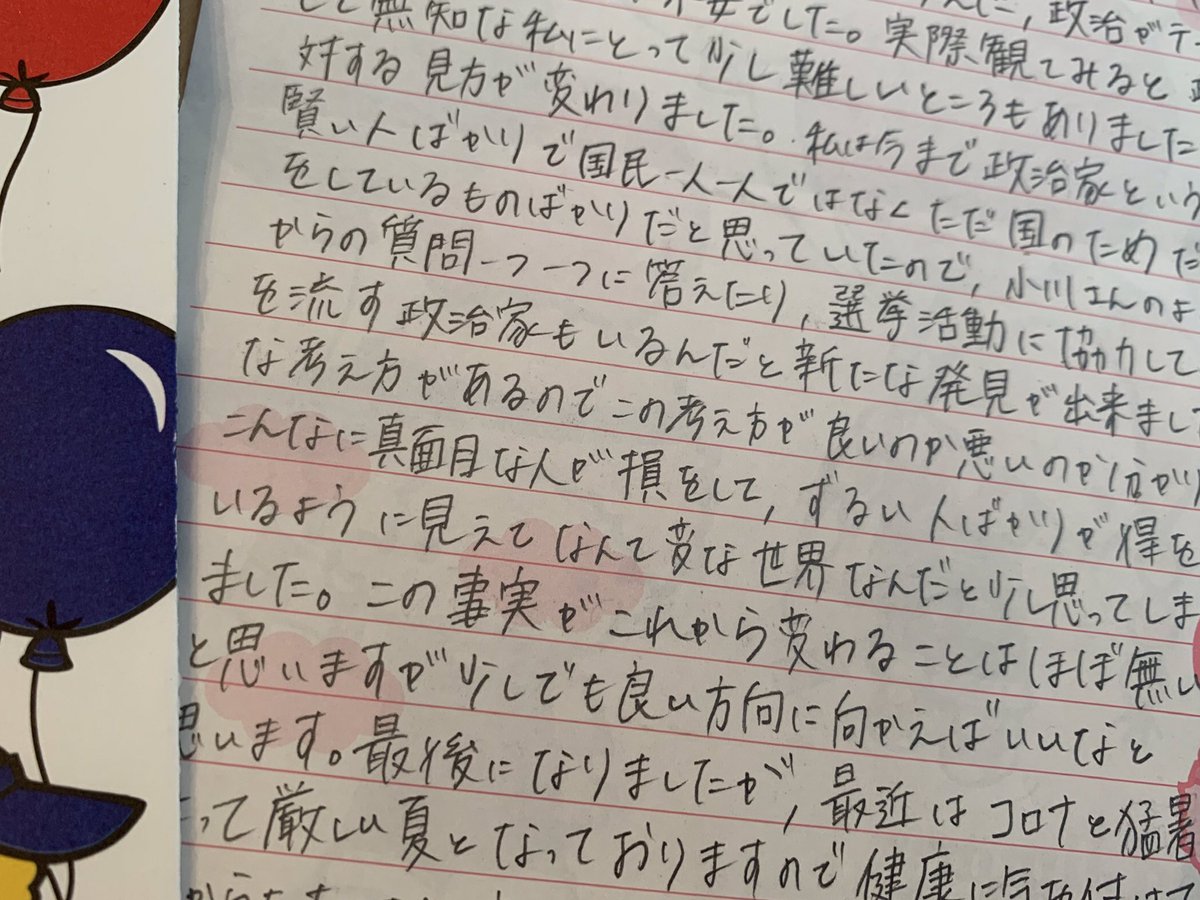 でした。 政治がテ
して無知な私にとって少し難しいところもありました
実際観てみると
対する見方が変わりました。私は今まで政治家という
賢い人ばかりで国民一人一人ではなくただ国のためた
をしているものばかりだと思っていたので、小川さんのよ
からの質問一つ一つに答えたり、選挙活動に協力して
を流す政治家もいるんだと新たな発見が出来まし
な考え方があるのでこの考え方が良いのか悪いのか分かり
こんなに真面目な人が損をして、ずるい人ばかりが得を
いるように見えてなんて変な世界なんだと少し思ってしま
ました。この事実がこれから変わることはほぼ無い
と思いますが少しでも良い方向に向かえばいいなと
思います。最後になりましたが、最近はコロナと猛暑
って厳しい夏となっておりますので健康に気を付けて